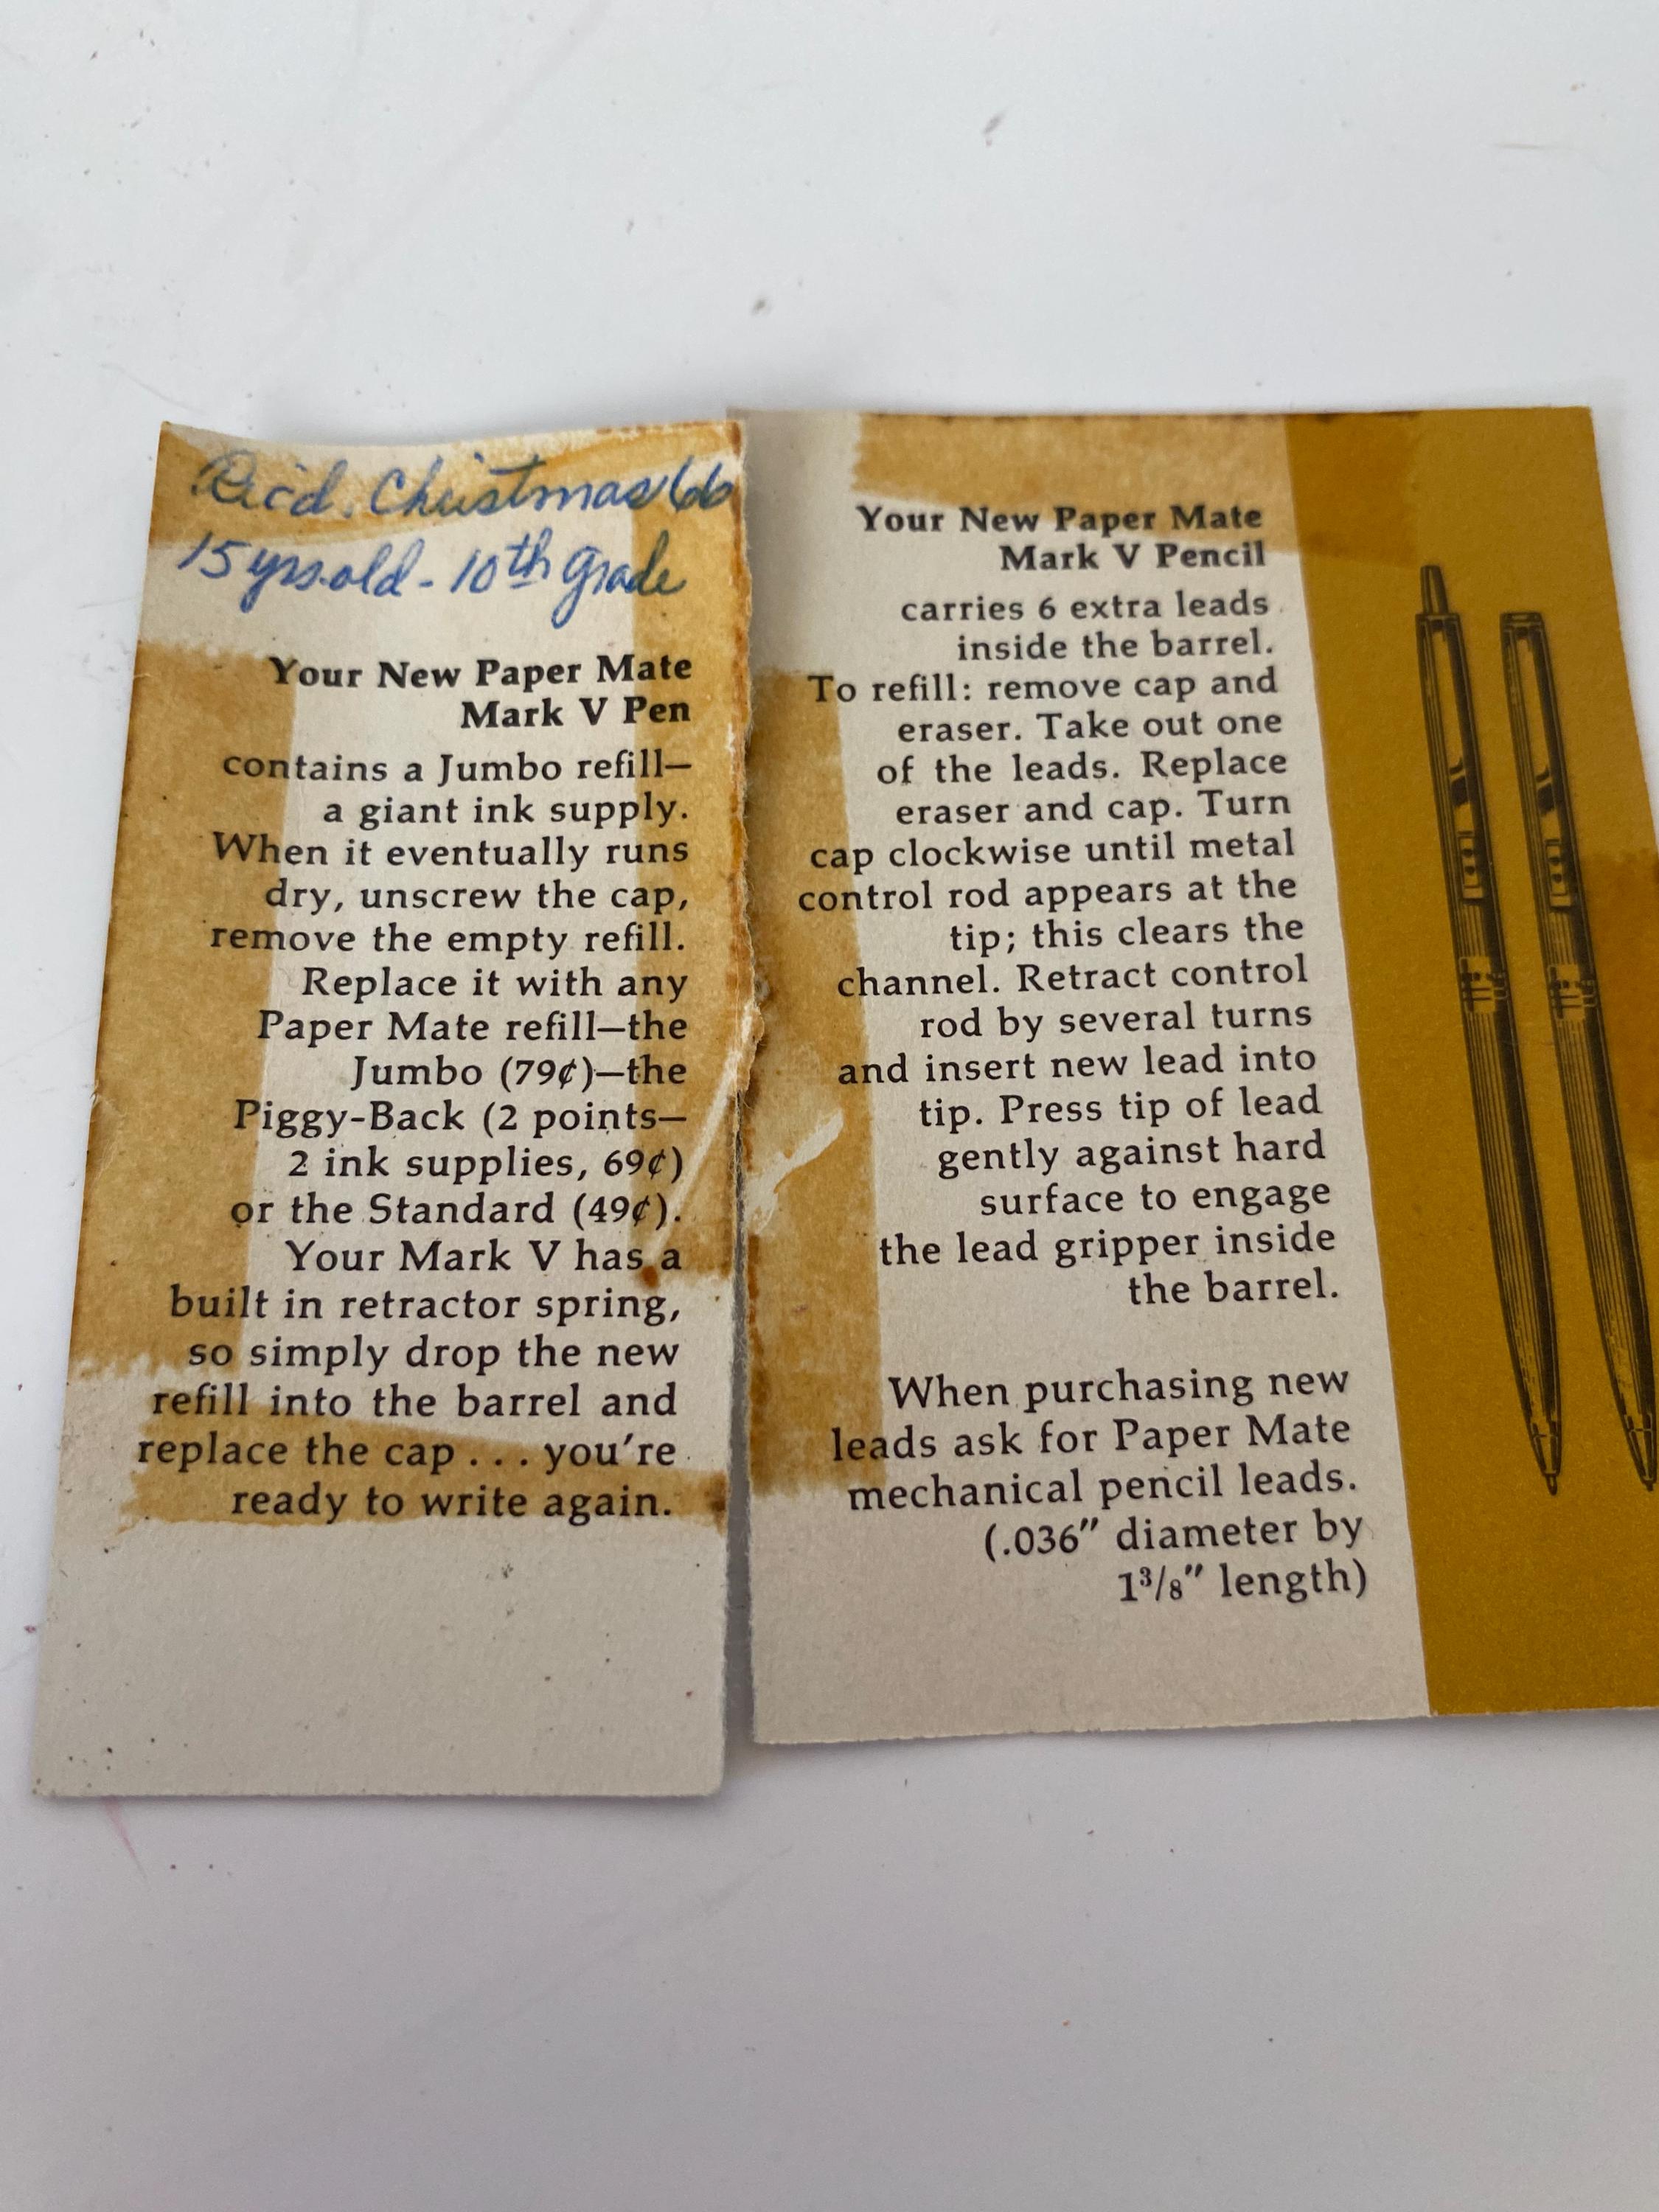 Rec'd. Christmas 66
15 yrs. old - 10th Grade
Your New Paper Mate
Mark V Pen
contains a Jumbo refill—
a giant ink supply.
When it eventually runs
dry, unscrew the cap,
remove the empty refill.
Replace it with any
Paper Mate refill—the
Jumbo (79¢)—the
Piggy-Back (2 points—
2 ink supplies, 69¢)
or the Standard (49¢).
Your Mark V has a
built in retractor spring,
so simply drop the new
refill into the barrel and
replace the cap . . . you're
ready to write again.
Your New Paper Mate
Mark V Pencil
carries 6 extra leads
inside the barrel.
To refill: remove cap and
eraser. Take out one
of the leads. Replace
eraser and cap. Turn
cap clockwise until metal
control rod appears at the
tip; this clears the
channel. Retract control
rod by several turns
and insert new lead into
tip. Press tip of lead
gently against hard
surface to engage
the lead gripper inside
the barrel.
When purchasing new
leads ask for Paper Mate
mechanical pencil leads.
(.036″ diameter by
1³/₈″ length)